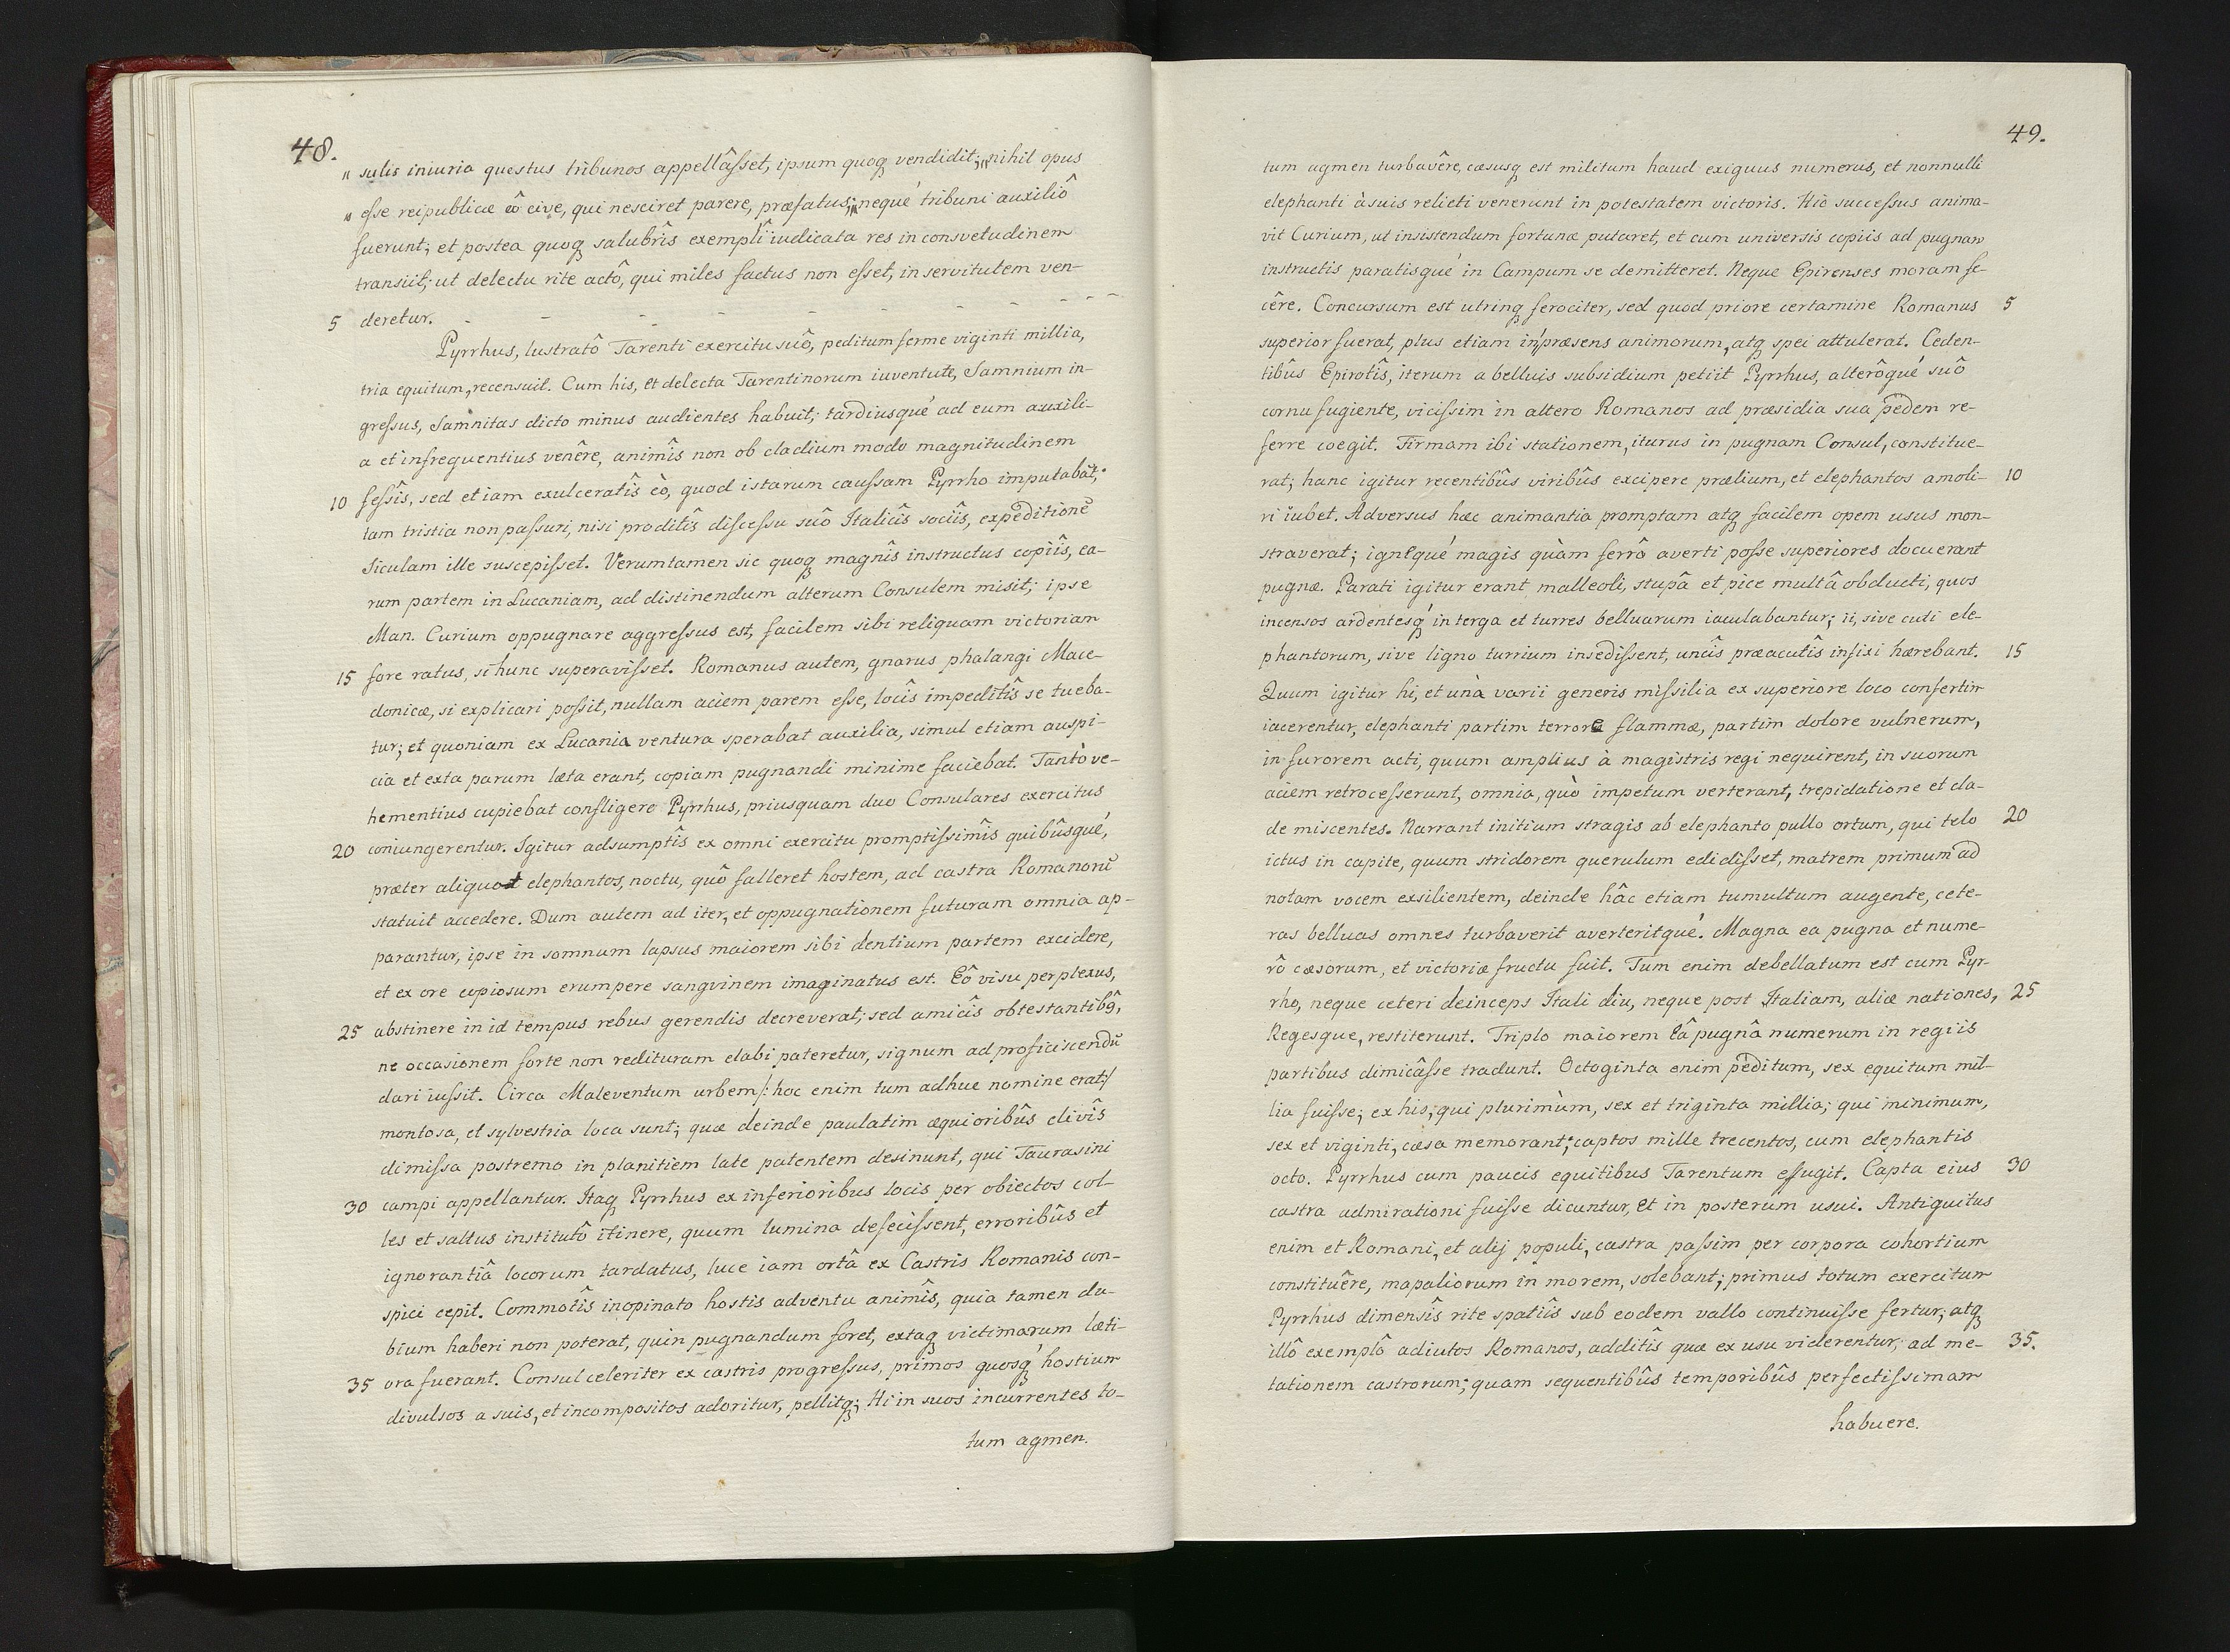 48.
„ sulis iniuria questus tribunos appellâsset, ipsum quoqꝫ vendidit; „nihil opus
„ esse reipublicæ eô cive, qui nesciret parere, præfatus;„ nequé tribuni auxiliô
fuerunt; et postea quoqꝫ salubrîs exemplî iudicata res in consvetudinem
transiit; ut delectu rite actô, qui miles factus non esset, in servitutem ven-
5 deretur. - - - - - - - - - -
Pyrrhus, lustratô Tarenti exercitu suô, peditum ferme viginti millia,
tria equitum, recensuit. Cum his, et delecta Tarentinorum iuventute, Samnium in-
gressus, Samnitas dicto minus audientes habuit; tardiusqué ad eum auxili-
a et infrequentius venêre, animîs non ob cladium modo magnitudinem
10 fessîs, sed etiam exulceratîs eò, quod istarum caussam Pyrrho imputabāt,
tam tristia non passuri, nisi proditîs discessu suô Italicîs sociîs, expeditionē
Siculam ille suscepisset. Verumtamen sic quoqꝫ magnîs instructus copiîs, ea-
rum partem in Lucaniam, ad distinendum alterum Consulem misit; ipse
Man. Curium oppugnare aggressus est, facilem sibi reliquam victoriam
15 fore ratus, si hunc superavisset. Romanus autem, gnarus phalangi Mace-
donicæ, si explicari possit, nullam aciem parem esse, locîs impeditîs se tueba-
tur; et quoniam ex Lucania ventura sperabat auxilia, simul etiam auspi-
cia et exta parum læta erant, copiam pugnandi minime faciebat. Tantò ve-
hementius cupiebat confligere Pyrrhus, priusquam duo Consulares exercitus
20 coniungerentur. Igitur adsumptîs ex omni exercitu promptissimîs quibûsqué,
præter aliquot elephantos, noctu, quô falleret hostem, ad castra Romanorū
statuit accedere. Dum autem ad iter, et oppugnationem futuram omnia ap-
parantur, ipse in somnum lapsus maiorem sibi dentium partem excidere,
et ex ore copiosum erumpere sangvinem imaginatus est. Eô visu perplexus,
25 abstinere in id tempus rebus gerendis decreverat; sed amicîs obtestantibꝰ,
ne occasionem forte non redituram elabi pateretur, signum ad proficiscendū
dari iussit. Circa Maleventum urbem /: hoc enim tum adhuc nomine erat :/
montosa, et sylvestria loca sunt; quæ deinde paulatim æquioribûs clivîs
dimissa postremo in planitiem late patentem desinunt, qui Taurasini
30 campi appellantur. Itaqꝫ Pyrrhus ex inferioribus locis per obiectos col-
les et saltus institutô itinere, quum lumina defecissent, erroribûs et
ignorantiâ locorum tardatus, luce iam ortâ ex Castris Romanis con-
spici cepit. Commotîs inopinato hostis adventu animîs, quia tamen du-
bium haberi non poterat, quin pugnandum foret, extaqꝫ victimarum læti-
35 ora fuerant. Consul celeriter ex castris progressus, primos quosqꝫ hostium
divulsos a suis, et incompositos adoritur, pellitqꝫ; Hi in suos incurrentes to-
tum agmen.
49.
tum agmen turbavêre, cæsusqꝫ est militum haud exiguus numerus, et nonnulli
elephanti à suis relicti venerunt in potestatem victoris. Hic successus anima-
vit Curium, ut insistendum fortunæ putaret, et cum universis copiis ad pugnam
instructis paratisqué in Campum se demitteret. Neque Epirenses moram fe-
cêre. Concursum est utrinqꝫ ferociter, sed quod priore certamine Romanus 5
superior fuerat, plus etiam in præsens animorum, atqꝫ spei attulerat. Ceden-
tibûs Epirotîs, iterum a belluis subsidium petiit Pyrrhus, alterôqué suô
cornu fugiente, vicissim in altero Romanos ad præsidia sua pedem re-
ferre coegit. Firmam ibi stationem, iturus in pugnam Consul, constitue-
rat; hanc igitur recentibûs viribûs excipere prælium, et elephantos amoli- 10
ri iubet. Adversus hæc animantia promptam atqꝫ facilem opem usus mon-
straverat; ignequé magis quàm ferrô averti posse superiores docuerant
pugnæ. Parati igitur erant malleoli, stupâ et pice multâ obducti, quos
incensos ardentesqꝫ in terga et turres belluarum iaculabantur; ii, sive cuti ele-
phantorum, sive ligno turrium insedissent, uncîs præacutîs infixi hærebant. 15
Quum igitur hi, et unà varii generis missilia ex superiore loco confertim
iacerentur, elephanti partim terrore flammæ, partim dolore vulnerum,
in furorem acti, quum amplius à magistris regi nequirent, in suorum
aciem retrocesserunt, omnia, quò impetum verterant, trepidatione et cla-
de miscentes. Narrant initium stragis ab elephanto pullo ortum, qui telo 20
ictus in capite, quum stridorem querulum edidisset, matrem primum ad
notam vocem exsilientem, deinde hâc etiam tumultum augente, cete-
ras belluas omnes turbaverit averteritqué. Magna ea pugna et nume-
rô cæsorum, et victoriæ fructu fuit. Tum enim debellatum est cum Pyr-
rho, neque ceteri deinceps Itali diu, neque post Italiam, aliæ nationes, 25
Regesque, restiterunt. Triplo maiorem eâ pugnâ numerum in regiis
partibus dimicâsse tradunt. Octoginta enim peditum, sex equitum mil-
lia fuisse; ex his, qui plurimùm, sex et triginta millia; qui minimum,
sex et viginti, cæsa memorant; captos mille trecentos, cum elephantis
octo. Pyrrhus cum paucis equitibus Tarentum effugit. Capta eius 30
castra admirationi fuisse dicuntur, et in posterum usui. Antiquitus
enim et Romani, et alij populi, castra passim per corpora cohortium
constituêre, mapaliorum in morem, solebant; primus totum exercitum
Pyrrhus dimensîs rite spatiîs sub eodem vallo continuisse fertur; atqꝫ
illô exemplô adiutos Romanos, additîs quæ ex usu viderentur, ad me- 35.
tationem castrorum; quam sequentibûs temporibûs perfectissimam
habuere.